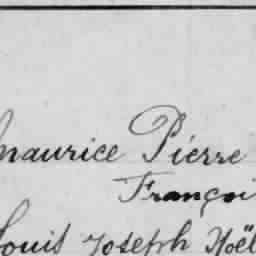 Maurice Pierre
Françoi
Louis Joseph Noël